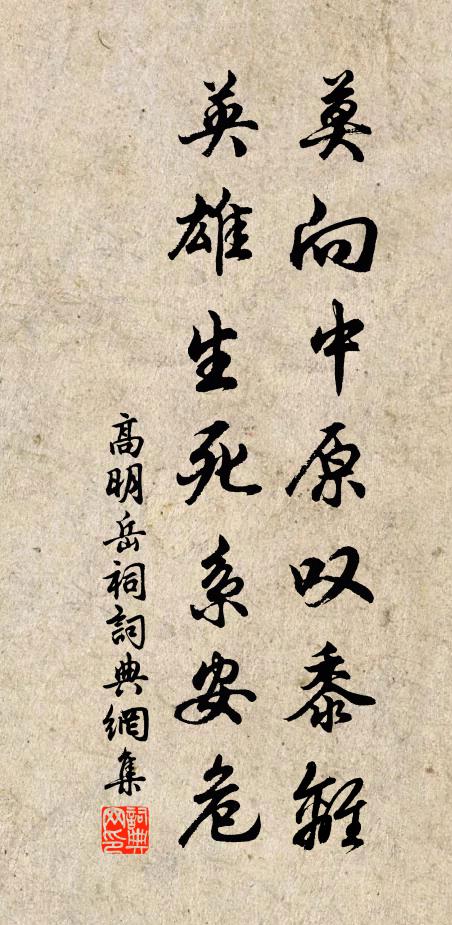 莫向中原叹黍離
英雄生死系安危
高明岳祠詞典網集
詞典網印